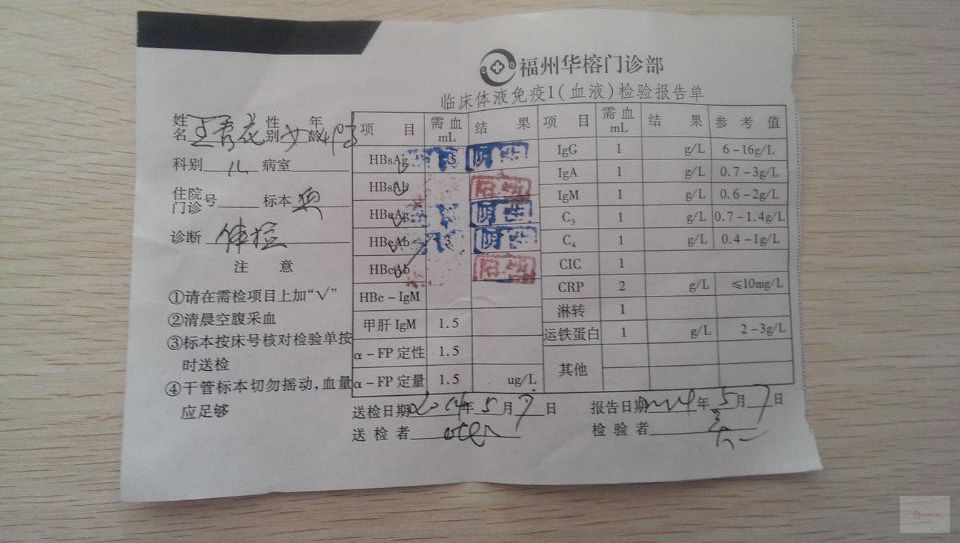 福州华榕门诊部
临床体液免疫1(血液)检验报告单
姓名 性别 女 年龄
科别 儿 病室
住院门诊号 标本
诊断 体检
注 意
①请在需检项目上加“√”
②清晨空腹采血
③标本按床号核对检验单按
时送检
④干管标本切勿摇动,血量
应足够
项 目 需血mL 结 果 项 目 需血mL 结 果 参考值
HBsAg 阴性 IgG 1 g/L 6-16g/L
HBsAb 阳性 IgA 1 g/L 0.7-3g/L
HBeAg 阴性 IgM 1 g/L 0.6-2g/L
HBeAb 阴性 C₃ 1 g/L 0.7-1.4g/L
HBcAb 阳性 C₄ 1 g/L 0.4-1g/L
CIC 1
HBc-IgM CRP 2 g/L ≤10mg/L
甲肝IgM 1.5 淋转 1
α-FP定性 1.5 运铁蛋白 1 g/L 2-3g/L
α-FP定量 1.5 ug/L 其他
送检日期 2014年5月7日 报告日期 2014年5月7日
送检者 检验者